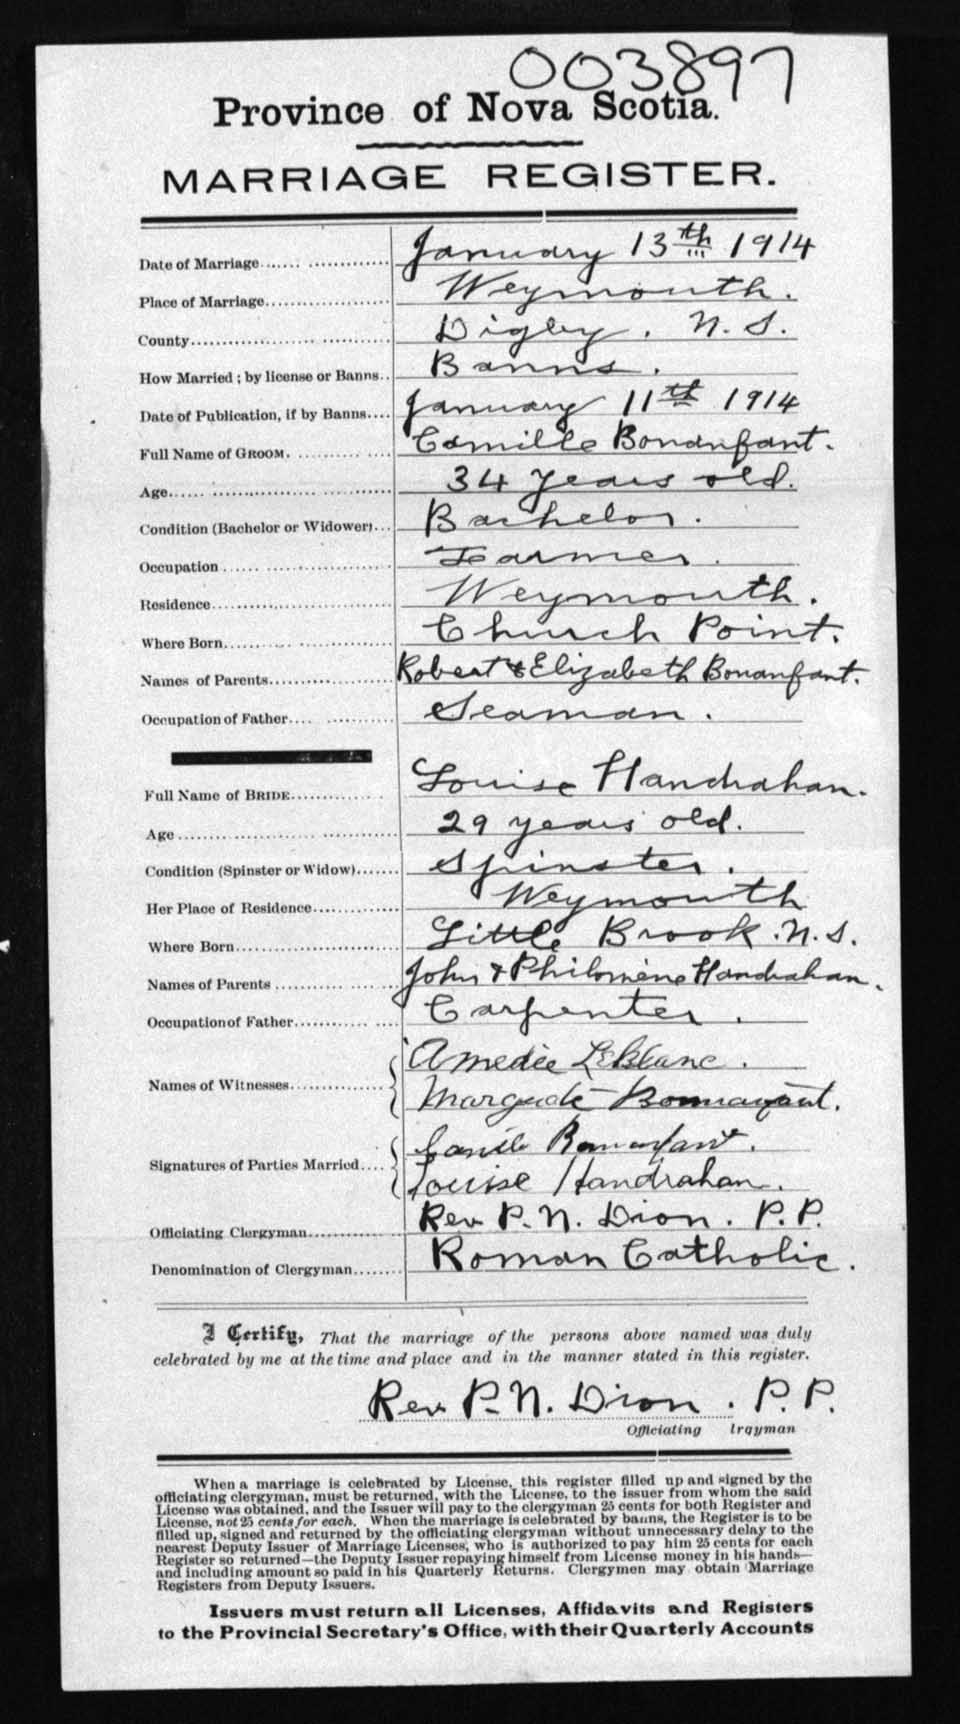 003897
Province of Nova Scotia.
MARRIAGE REGISTER.
Date of Marriage........ January 13th 1914
Place of Marriage........ Weymouth.
County........ Digby. N. S.
How Married; by license or Banns.. Banns.
Date of Publication, if by Banns.... January 11th 1914
Full Name of GROOM. ........ Camille Bonanfant.
Age........ 34 years old.
Condition (Bachelor or Widower)... Bachelor.
Occupation ........ Farmer.
Residence........ Weymouth.
Where Born........ Church Point.
Names of Parents........ Robert & Elizabeth Bonanfant.
Occupation of Father........ Seaman.
Full Name of BRIDE........ Louise Handrahan.
Age........ 29 years old.
Condition (Spinster or Widow)....... Spinster.
Her Place of Residence........ Weymouth
Where Born........ Little Brook. N. S.
Names of Parents ........ John & Philomène Handrahan.
Occupation of Father........ Carpenter.
Names of Witnesses........ Amedée LeBlanc.
Bonnanfant.
Signatures of Parties Married.... Bonanfant.
Louise Handrahan.
Officiating Clergyman........ Rev P. N. Dion. P. P.
Denomination of Clergyman........ Roman Catholic.
I Certify, That the marriage of the persons above named was duly
celebrated by me at the time and place and in the manner stated in this register.
Rev P. N. Dion. P. P.
Officiating lrgyman
When a marriage is celebrated by License, this register filled up and signed by the
officiating clergyman, must be returned, with the License, to the issuer from whom the said
License was obtained, and the Issuer will pay to the clergyman 25 cents for both Register and
License, not 25 cents for each. When the marriage is celebrated by banns, the Register is to be
filled up, signed and returned by the officiating clergyman without unnecessary delay to the
nearest Deputy Issuer of Marriage Licenses, who is authorized to pay him 25 cents for each
Register so returned—the Deputy Issuer repaying himself from License money in his hands—
and including amount so paid in his Quarterly Returns. Clergymen may obtain Marriage
Registers from Deputy Issuers.
Issuers must return all Licenses, Affidavits and Registers
to the Provincial Secretary's Office, with their Quarterly Accounts